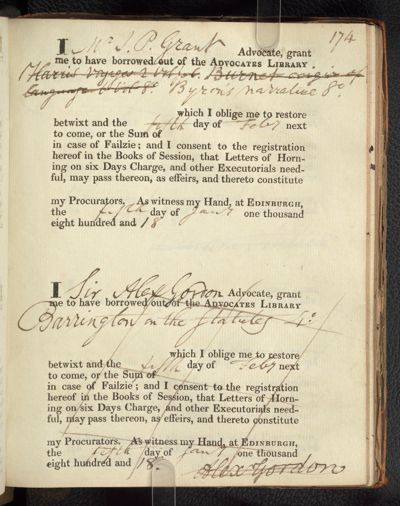 174
I Mr J. P. Grant Advocate, grant
me to have borrowed out of the ADVOCATES LIBRARY
Harris Voyages 2 Vol. Burnet origin of
language 8º. Byron's narrative 8º
which I oblige me to restore
betwixt and the fifth day of Feby next
to come, or the Sum of
in case of Failzie; and I consent to the registration
hereof in the Books of Session, that Letters of Horn-
ing on six Days Charge, and other Executorials need-
ful, may pass thereon, as effeirs, and thereto constitute
my Procurators. As witness my Hand, at EDINBURGH,
the fifth day of Jany one thousand
eight hundred and 18
I Sir Alex Gordon Advocate, grant
me to have borrowed out of the ADVOCATES LIBRARY
Barrington on the Statutes 4º
which I oblige me to restore
betwixt and the fifth day of Feby next
to come, or the Sum of
in case of Failzie; and I consent to the registration
hereof in the Books of Session, that Letters of Horn-
ing on six Days Charge, and other Executorials need-
ful, may pass thereon, as effeirs, and thereto constitute
my Procurators. As witness my Hand, at EDINBURGH,
the fifth day of Jany one thousand
eight hundred and 18
Alex Gordon